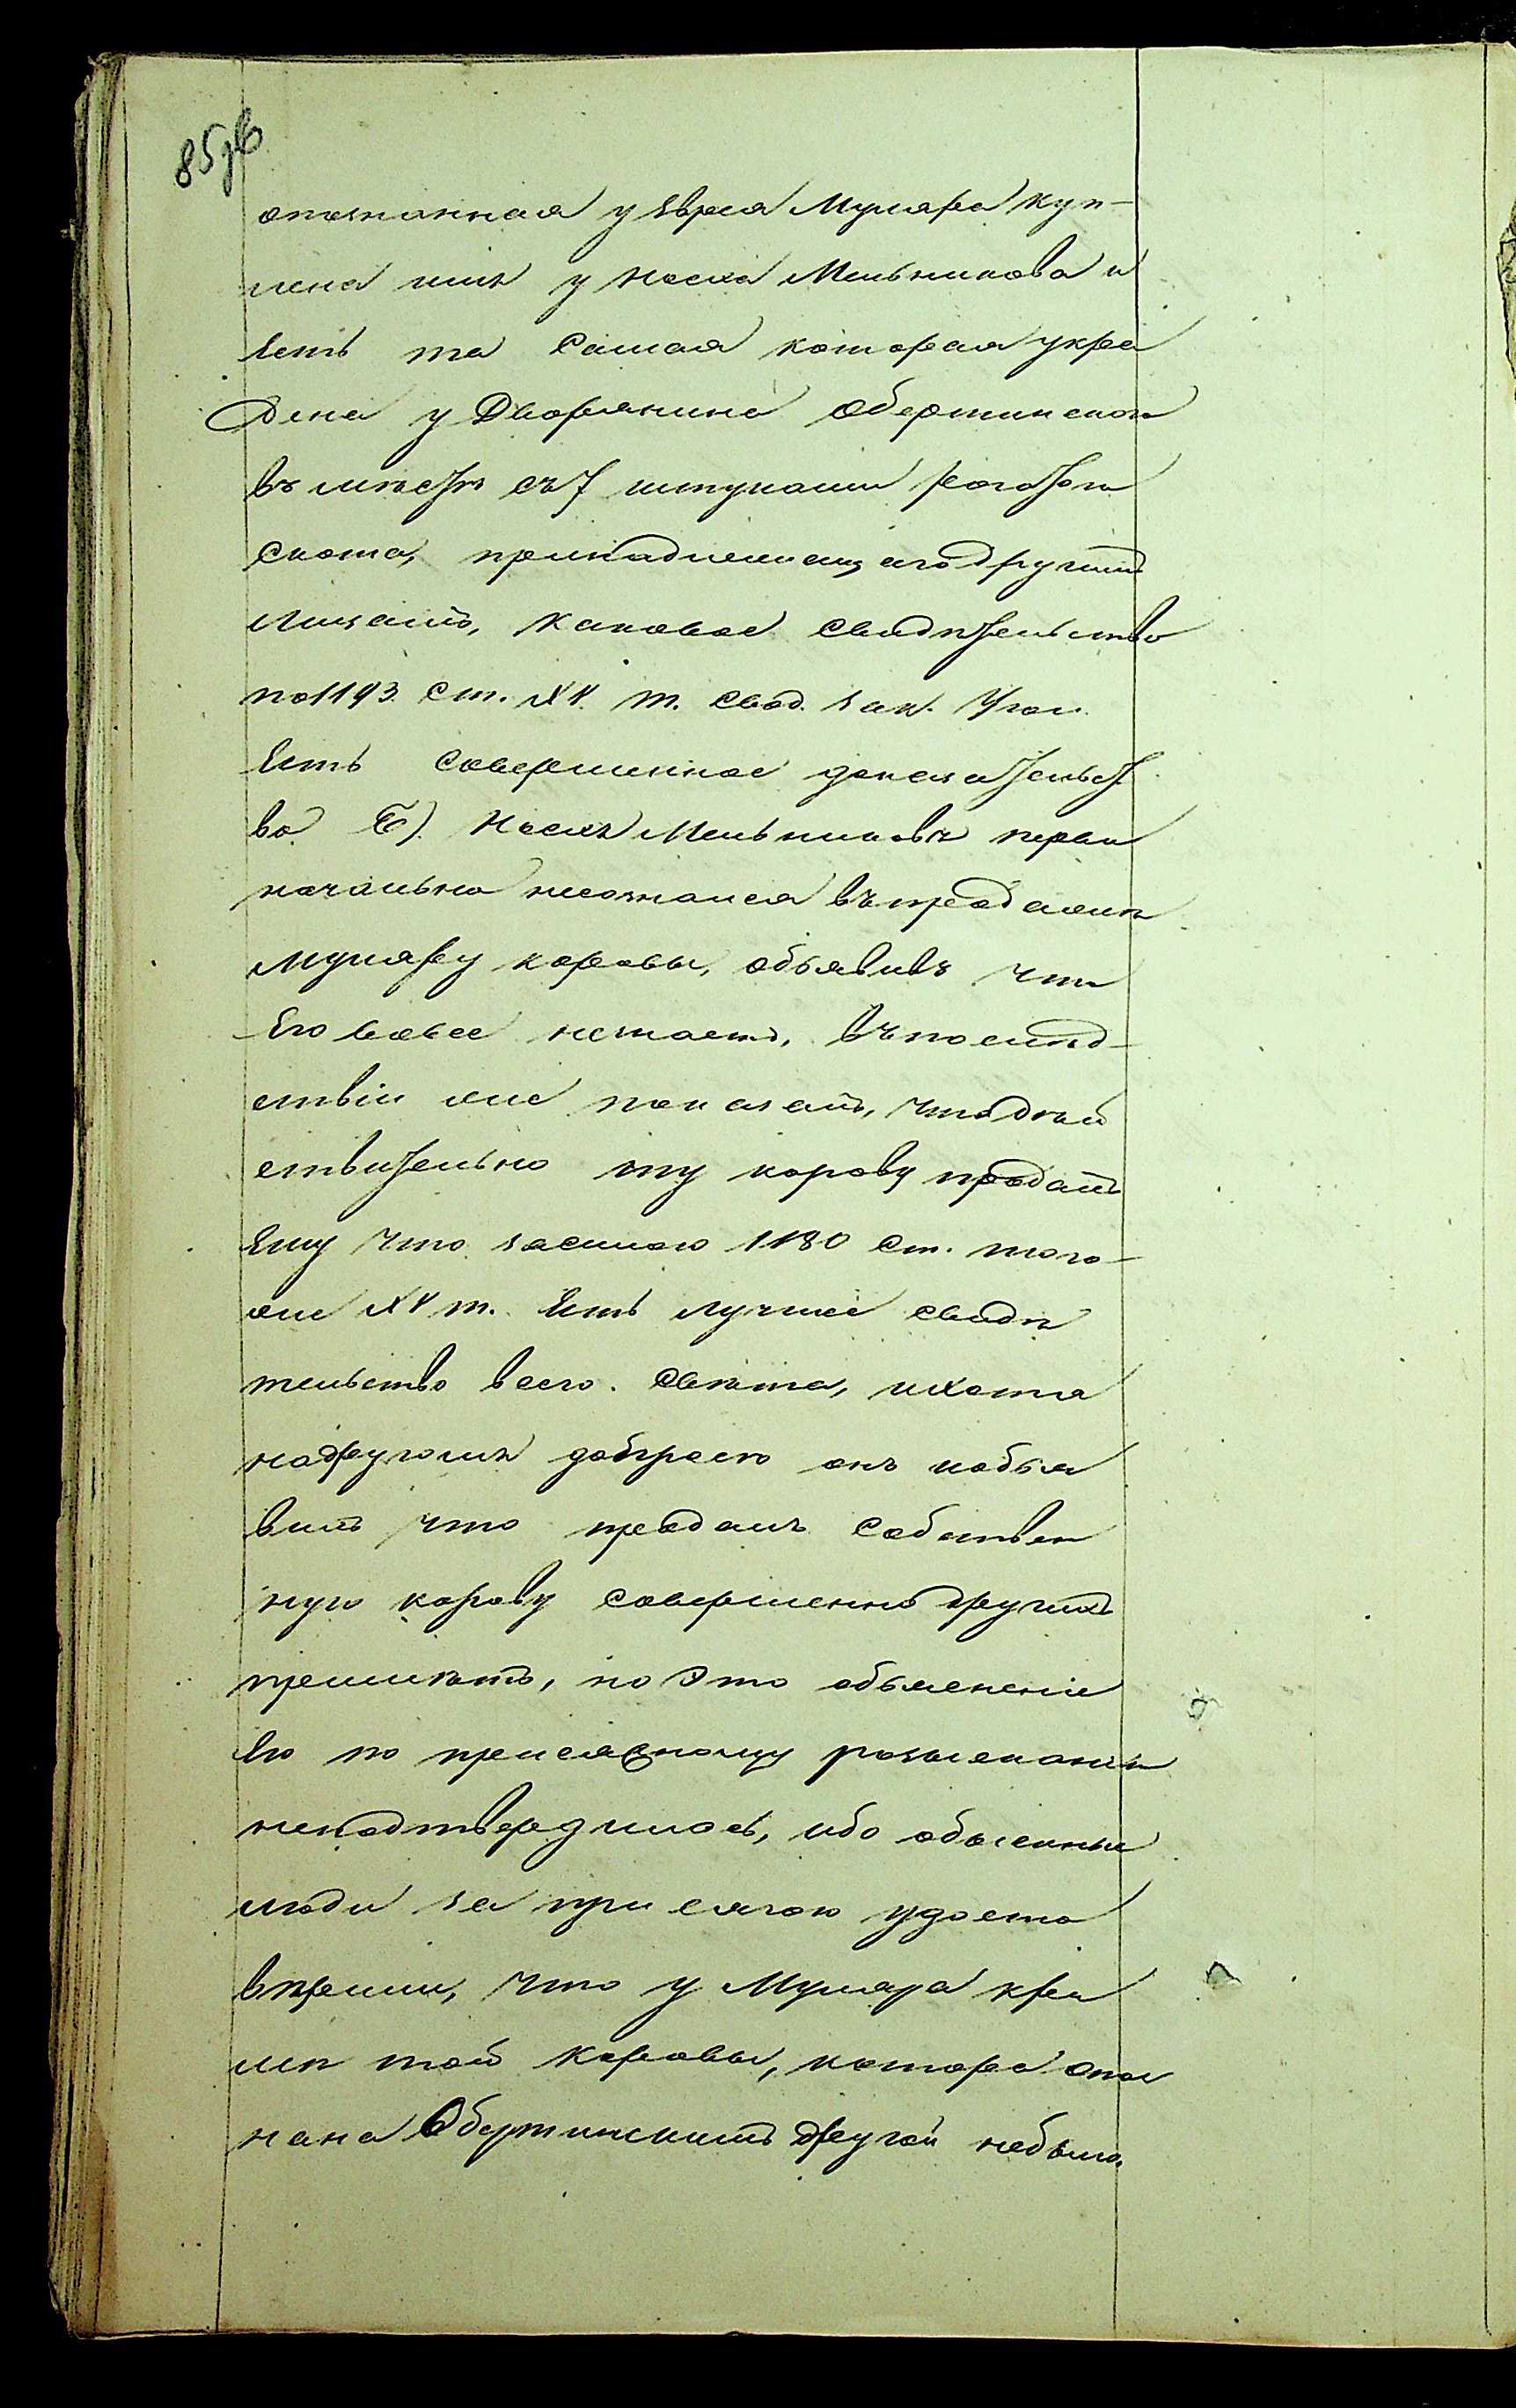 85 зв
опознанная у Еврея Муляра куп-
лена имъ у Носка Мельникова и
есть та самая которая укра
дена у Дворянина Обертинскаго
въ мѣстѣ съ 7 штуками рогатаго
скота, принадлежащаго другимъ
лицамъ, каковое свидѣтельство
по 1193 ст. XV. т. Свод. Зак. Угол.
Есть совершенное доказательст
во. Б). Носкъ Мельниковъ перво
начально несознался въ продажѣ
Муляру коровы, объявивъ что
Его вовсе незнаетъ, въ послѣд-
ствіи же показалъ, что дѣй
ствительно ту корову продалъ
Ему что засилою 1180 ст. того-
же XV т. Есть лучшее свидѣ
тельство всего свѣта, и хотя
на другомъ допросѣ онъ и объя
вилъ что продалъ собствен
ную корову совершенно другихъ
примѣтъ, но это объясненіе
Его по присяжному розысканію
неподтвердилось, ибо обысканные
люди за присягою удосто
вѣрили, что у Муляра кро
мѣ той коровы, котора опоз
нана Обертинскимъ другой небыло.